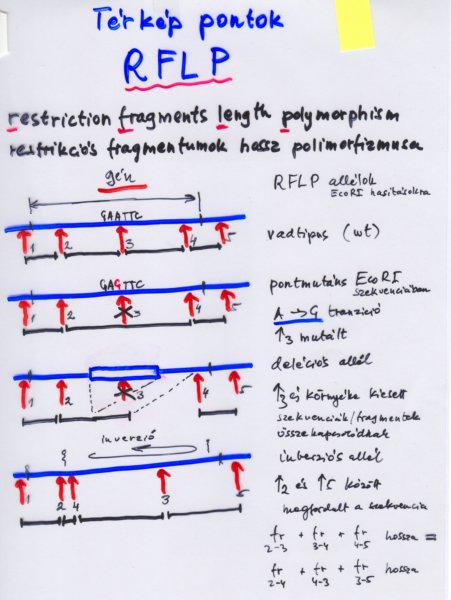 Térkép pontok
RFLP
restriction fragments length polymorphism
restrikciós fragmentumok hossz polimorfizmusa
gén
RFLP allélok
EcoRI hasításokra
GAATTC
1 2 3 4 5
vadtípus (wt)
GAGTTC
1 2 3 4 5
pontmutáns EcoRI
szekvenciában
A → G tranzíció
↑3 mutált
1 2 3 4 5
deléciós allél
↑3 és környéke kiesett
szekvenciák/fragmentek
összekapcsolódtak
inverzió
1 2 4 3 5
inverziós allél
↑2 és ↑5 között
megfordult a szekvencia
fr 2-3 + fr 3-4 + fr 4-5 hossza =
fr 2-4 + fr 4-3 + fr 3-5 hossza